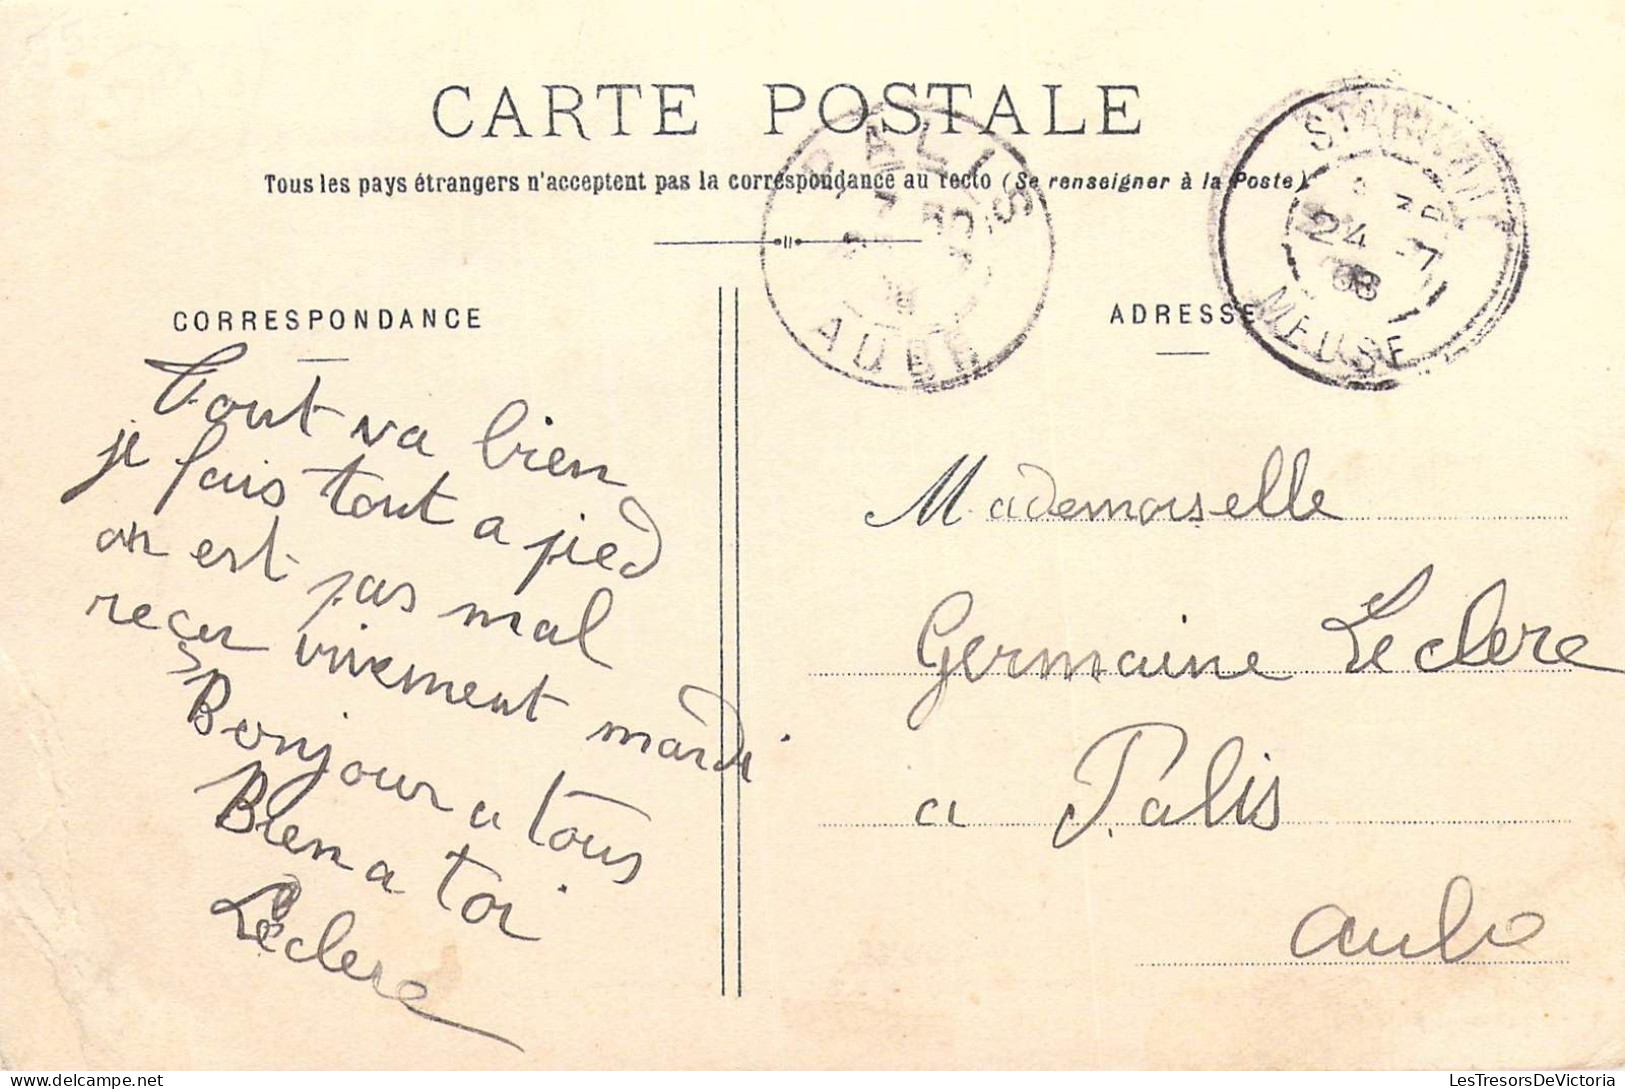 CARTE POSTALE
Tous les pays étrangers n'acceptent pas la correspondance au recto (Se renseigner à la Poste)
PALIS
AUBE
24 -7
08
MEUSE
CORRESPONDANCE
Tout va bien
je fais tout a pied
on est pas mal
reçu vivement mardi
Bonjour a tous
Bien a toi
Leclere
ADRESSE
Mademoiselle
Germaine Leclere
a Palis
Aube
LesTresorsDeVictoria